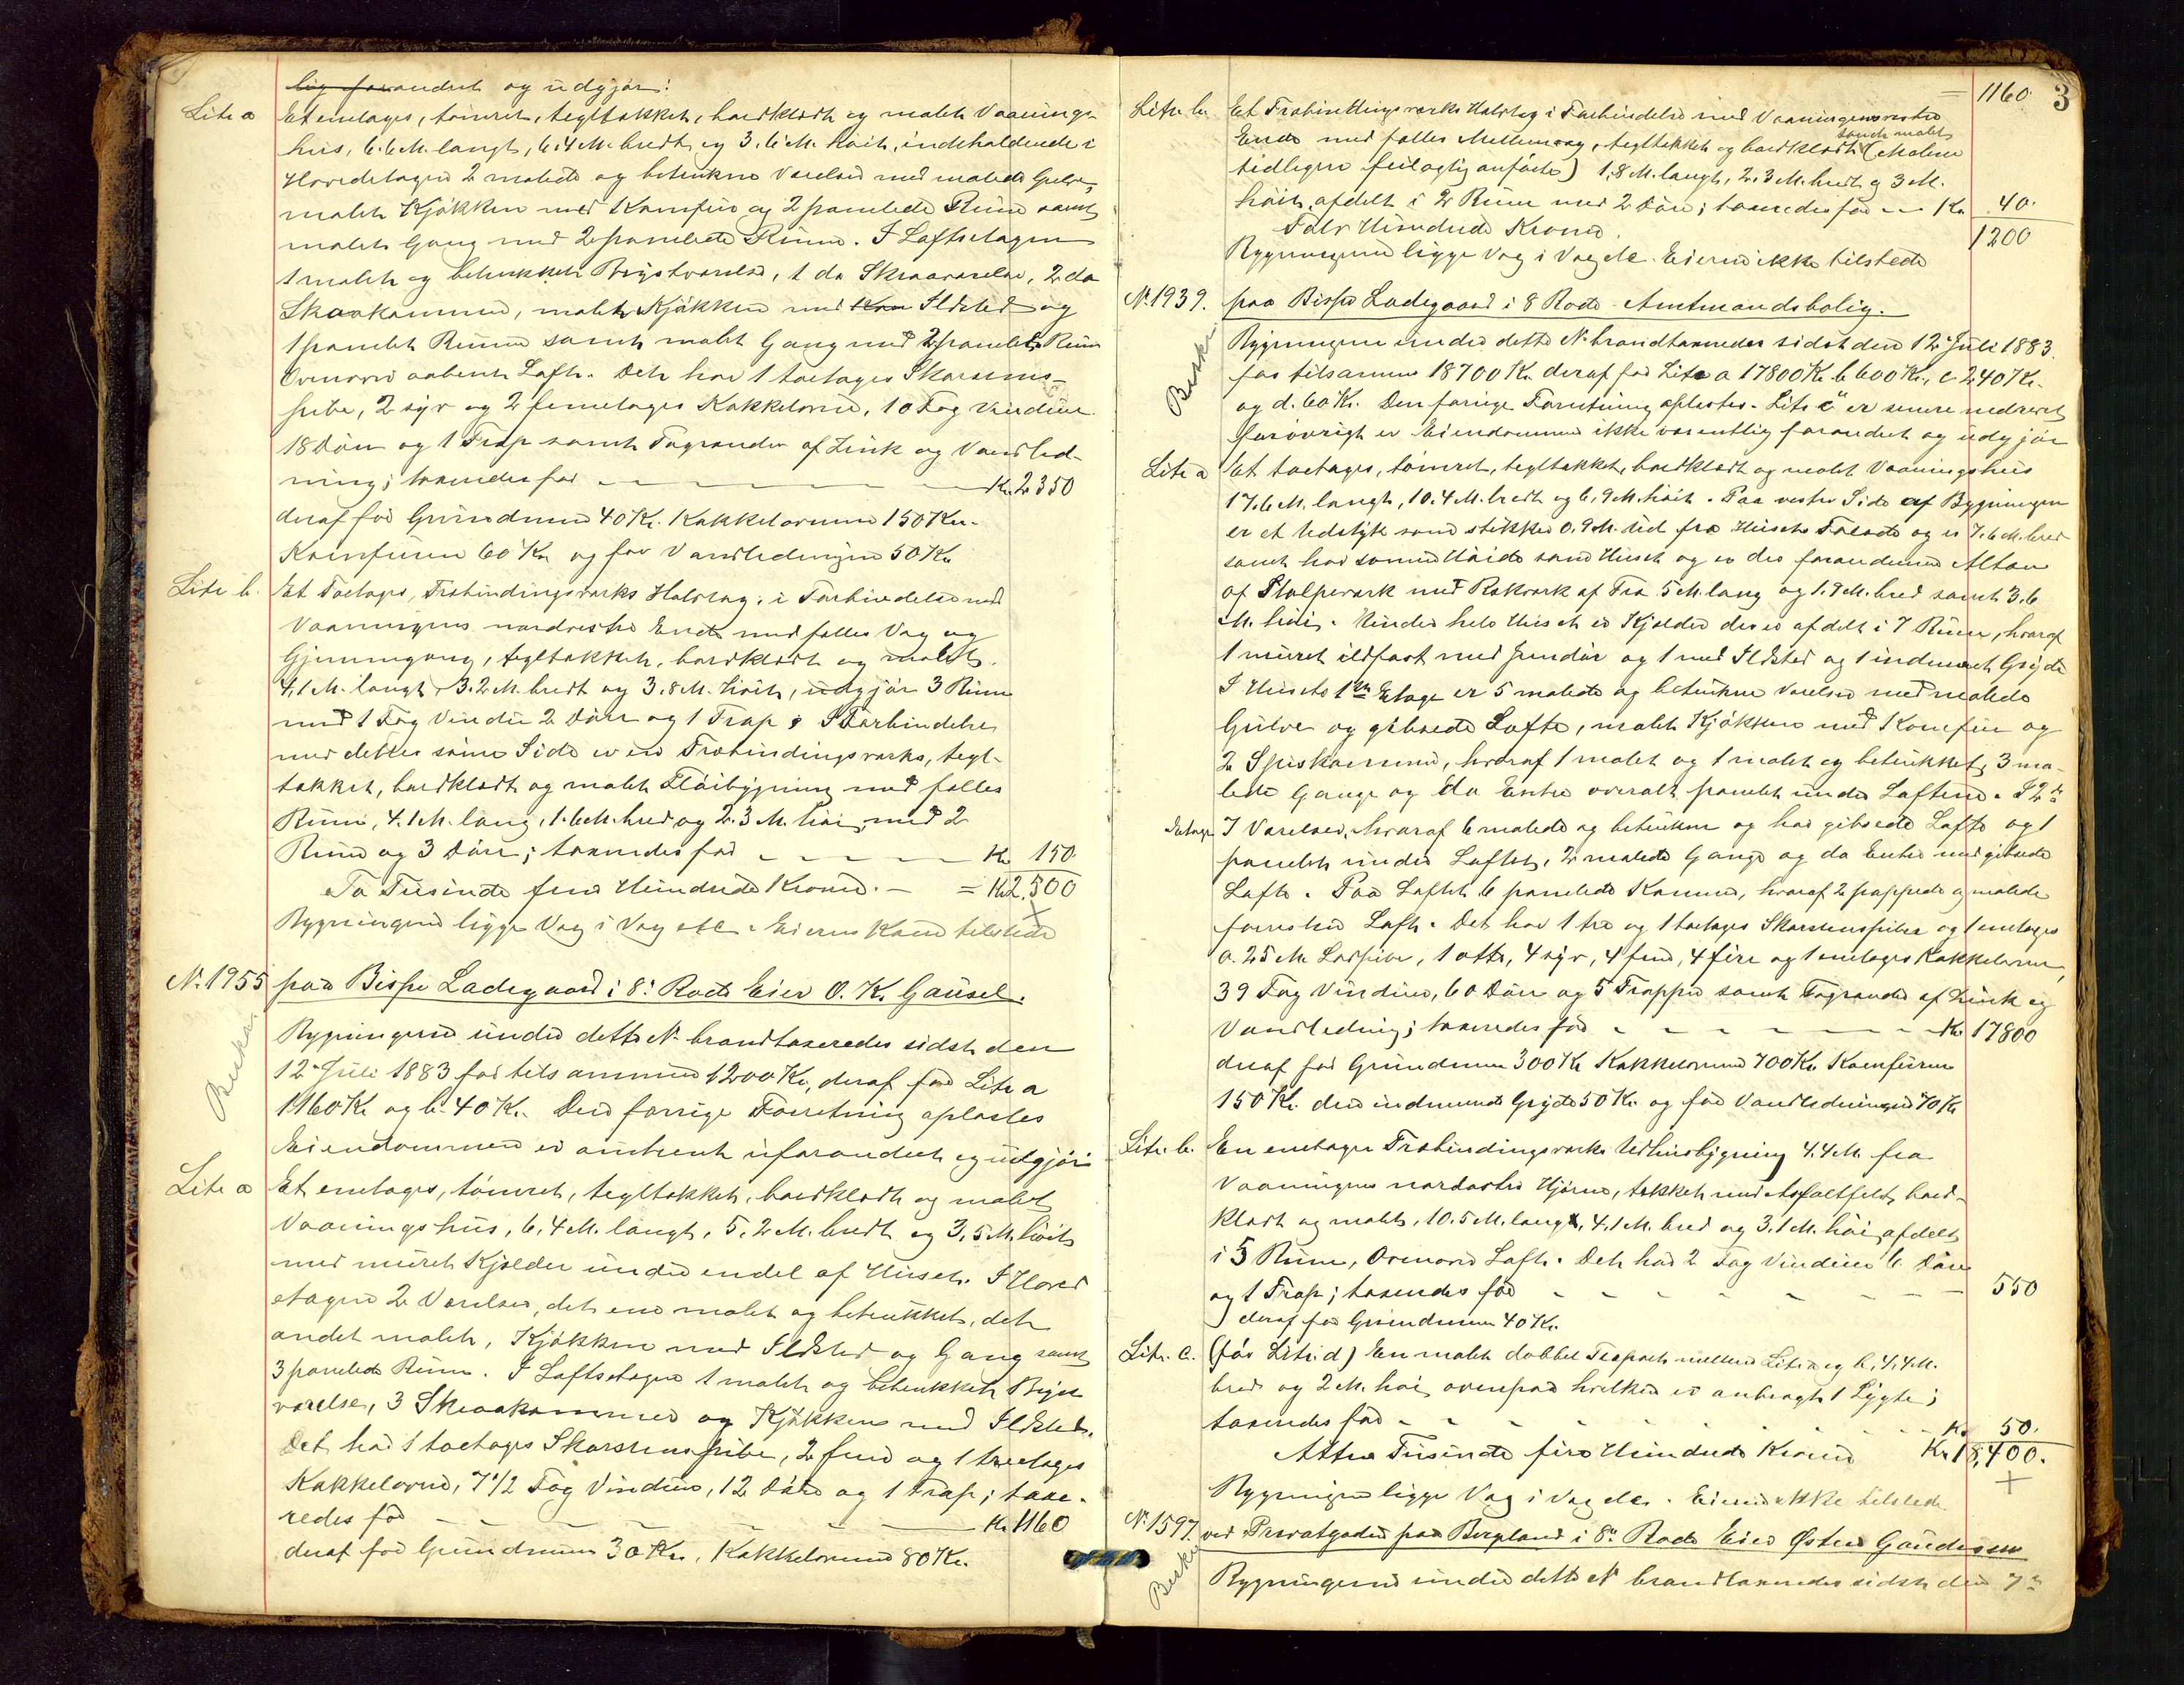 lig forandret og udgjør:
Litr a Et enetages, tømret, tegltækket, bordklædt og malet Vaanings-
hus, 6.6 M. langt, 6.4 M. bredt og 3.6 M. høit, indeholdende i
Hovedetagen 2 malede og betrukne Værelser med malede Gulve,
malet Kjøkken med Komfur og 2 panelede Rum samt
malet Gang med 2 panelede Rum. I Loftsetagen
1 malet og betrukket Brystværelse, 1 do Skraaværelse, 2 do
Skraakammer, malet Kjøkken med Ildsted og
1 panelet Rum samt malet Gang med 2 panelede Rum
Ovenover aabent Loft. Det har 1 toetages Skorstens-
pibe, 2 syv og 2 femetages Kakkelovne, 10 Fag Vinduer
18 Døre og 1 Trap samt Tagrender af Zink og Vandled-
ning; taxeredes for — Kr. 2350
deraf for Grundmur 40 Kr. Kakkelovnene 150 Kr.
Komfuren 60 Kr. og for Vandledningen 50 Kr.
Litr b. Et Toetages, Træbindingsværks Halvtag, i Forbindelse med
Vaaningens nordvestre Ende med fælles Væg og
Gjennemgang, tegltækket, bordklædt og malet.
4,1 M. langt, 3.2 M. bredt og 3.8 M. høit, udgjør 3 Rum
med 1 Fag Vindu 2 Døre og 1 Trap; I Forbindelse
med dettes søndre Side er en Træbindingsværks, tegl-
tækket, bordklædt og malet Fløibygning med fælles
Rum, 4.1 M. lang, 1.6 M. bred og 2.3 M. høi med 2
Rum og 3 Døre; taxeredes for — Kr. 150.
To Tusinde fem Hundrede Kroner. — = Kr. 2,500
Bygningerne ligge Væg i Væg etc. Eieren Kone tilstede
N. 1955 paa Bispe Ladegaard i 8de Rode Eier O. K. Gausel.
Beskr.
Bygningerne under dette N. brandtaxeredes sidst den
12. Juli 1883 for tilsammen 1200 Kr., deraf for Litr a
1160 Kr. og b. 40 Kr. Den forrige Forretning oplæstes
Eiendommen er omtrent uforandret og udgjør
Litr a Et enetages, tømret, tegltækket, bordklædt og malet
Vaaningshus, 6,4 M. langt, 5.2 M. bredt og 3,5 M. høit
med muret Kjelder under endel af Huset. I Hoved
etagen 2 Værelser, det ene malet og betrukket, det
andet malet, Kjøkken med Ildsted og Gang samt
3 panelede Rum. I Loftsetagen 1 malet og betrukket Bryst
værelse, 3 Skraakammer og Kjøkken med Ildsted.
Det har 1 toetages Skorstenspibe, 2 fem og 1 treetages
Kakkelovne, 7 1/2 Fag Vinduer, 12 Døre og 1 Trap; taxe-
redes for — Kr. 1160
deraf for Grundmur 30 Kr., Kakkelovnene 80 Kr.
1160. 3
Litr. b. Et Træbindingsværks Halvtag i Forbindelse med Vaaningens vestre
Ende med fælles Mellemvæg, tegltækket og bordklædt samt malet (Malene
tidligere feilagtig anførte) 1.8 M. langt, 2.3 M. bredt og 3 M.
høit, afdelt i 2 Rum med 2 Døre; taxeredes for — Kr. 40.
Tolv Hundrede Kroner. 1200
Bygningerne ligge Væg i Væg etc. Eieren ikke tilstede
N. 1939. paa Bispe Ladegaard i 8 Rode Amtmandsbolig.
Beskr.
Bygningerne under dette N. brandtaxeredes sidst den 12 Juli 1883.
for tilsammen 18700 Kr. deraf for Litr a 17800 Kr. b 600 Kr., c 240 Kr.
og d. 60 Kr. Den forrige Forretning oplæstes. Litr "c" er senere nedrevet
forøvrigt er Eiendommen ikke væsentlig forandret og udgjør
Litr a Et toetages, tømret, tegltækket, bordklædt og malet Vaaningshus
17.6 M. langt, 10.4 M. bredt og 6,9 M. høit. Paa vestre Side af Bygningen
er et Udstyk som stikker 0.9 M. ud fra Husets Facade og er 7.6 M. bred
samt har samme Høide som Huset og er der foran denne Altan
af Stolpeværk med Rækværk af Træ 5 M. lang og 1.9 M. bred samt 3.6
M. høi. Under hele Huset er Kjelder der er afdelt i 7 Rum, hvoraf
1 muret ildfast med Jerndør og 1 med Ildsted og 1 indmuret Gryde
I Husets 1ste Etage er 5 malede og betrukne Værelser med malede
Gulve og gibsede Lofte, malet Kjøkken med Komfur og
2 Spiskammer, hvoraf 1 malet og 1 malet og betrukket, 3 ma-
lede Gange og do Entre overalt panelet under Loftene. I 2den
Etage 7 Værelser, hvoraf 6 malede og betrukne og har gibsede Lofte og 1
panelet under Loftet, 2 malede Gange og do Entre med gibsede
Lofte. Paa Loftet 6 panelede Kammer, hvoraf 2 pappede og malede
forresten Loft. Det har 1 tre og 1 toetages Skorstenspiber og 1 enetages
0.25 M. Lodpibe, 1 otte, 4 syv, 4 fem, 4 fire og 1 enetages Kakkelovne,
39 Fag Vinduer, 60 Døre og 5 Trapper samt Tagrender af Zink og
Vandledning; taxeredes for — Kr. 17800
deraf for Grundmur 300 Kr. Kakkelovnene 700 Kr. Komfuren
150 Kr. den indmurede Gryde 50 Kr. og for Vandledningen 70 Kr.
Litr. b. En enetages Træbindingsværks Udhusbygning 4.4 M. fra
Vaaningens nordøstre Hjørne, tækket med Asfaltfilt, bord-
klædt og malet, 10.5 M. lang, 4.1 M. bred og 3.1 M. høi, afdelt
i 5 Rum, Ovenover Loft. Det har 2 Fag Vinduer 6 Døre
og 1 Trap; taxeredes for — 550
deraf for Grundmur 40 Kr.
Litr. c. (før Litr. d) En malet dobbel Træport mellem Litr. a og b, 4,4 M.
bred og 2 M. høi, ovenpaa hvilken er anbragt 1 Lygte;
taxeredes for — Kr. 50.
Atten Tusinde fire Hundrede Kroner Kr. 18,400.
Bygningerne ligge Væg i Væg etc. Eieren ikke tilstede
N. 1597. ved Privatgaden paa Bergeland i 8de Rode Eier Østen Gaudesen
Beskr.
Bygningerne under dette N. brandtaxeredes sidst den 7de